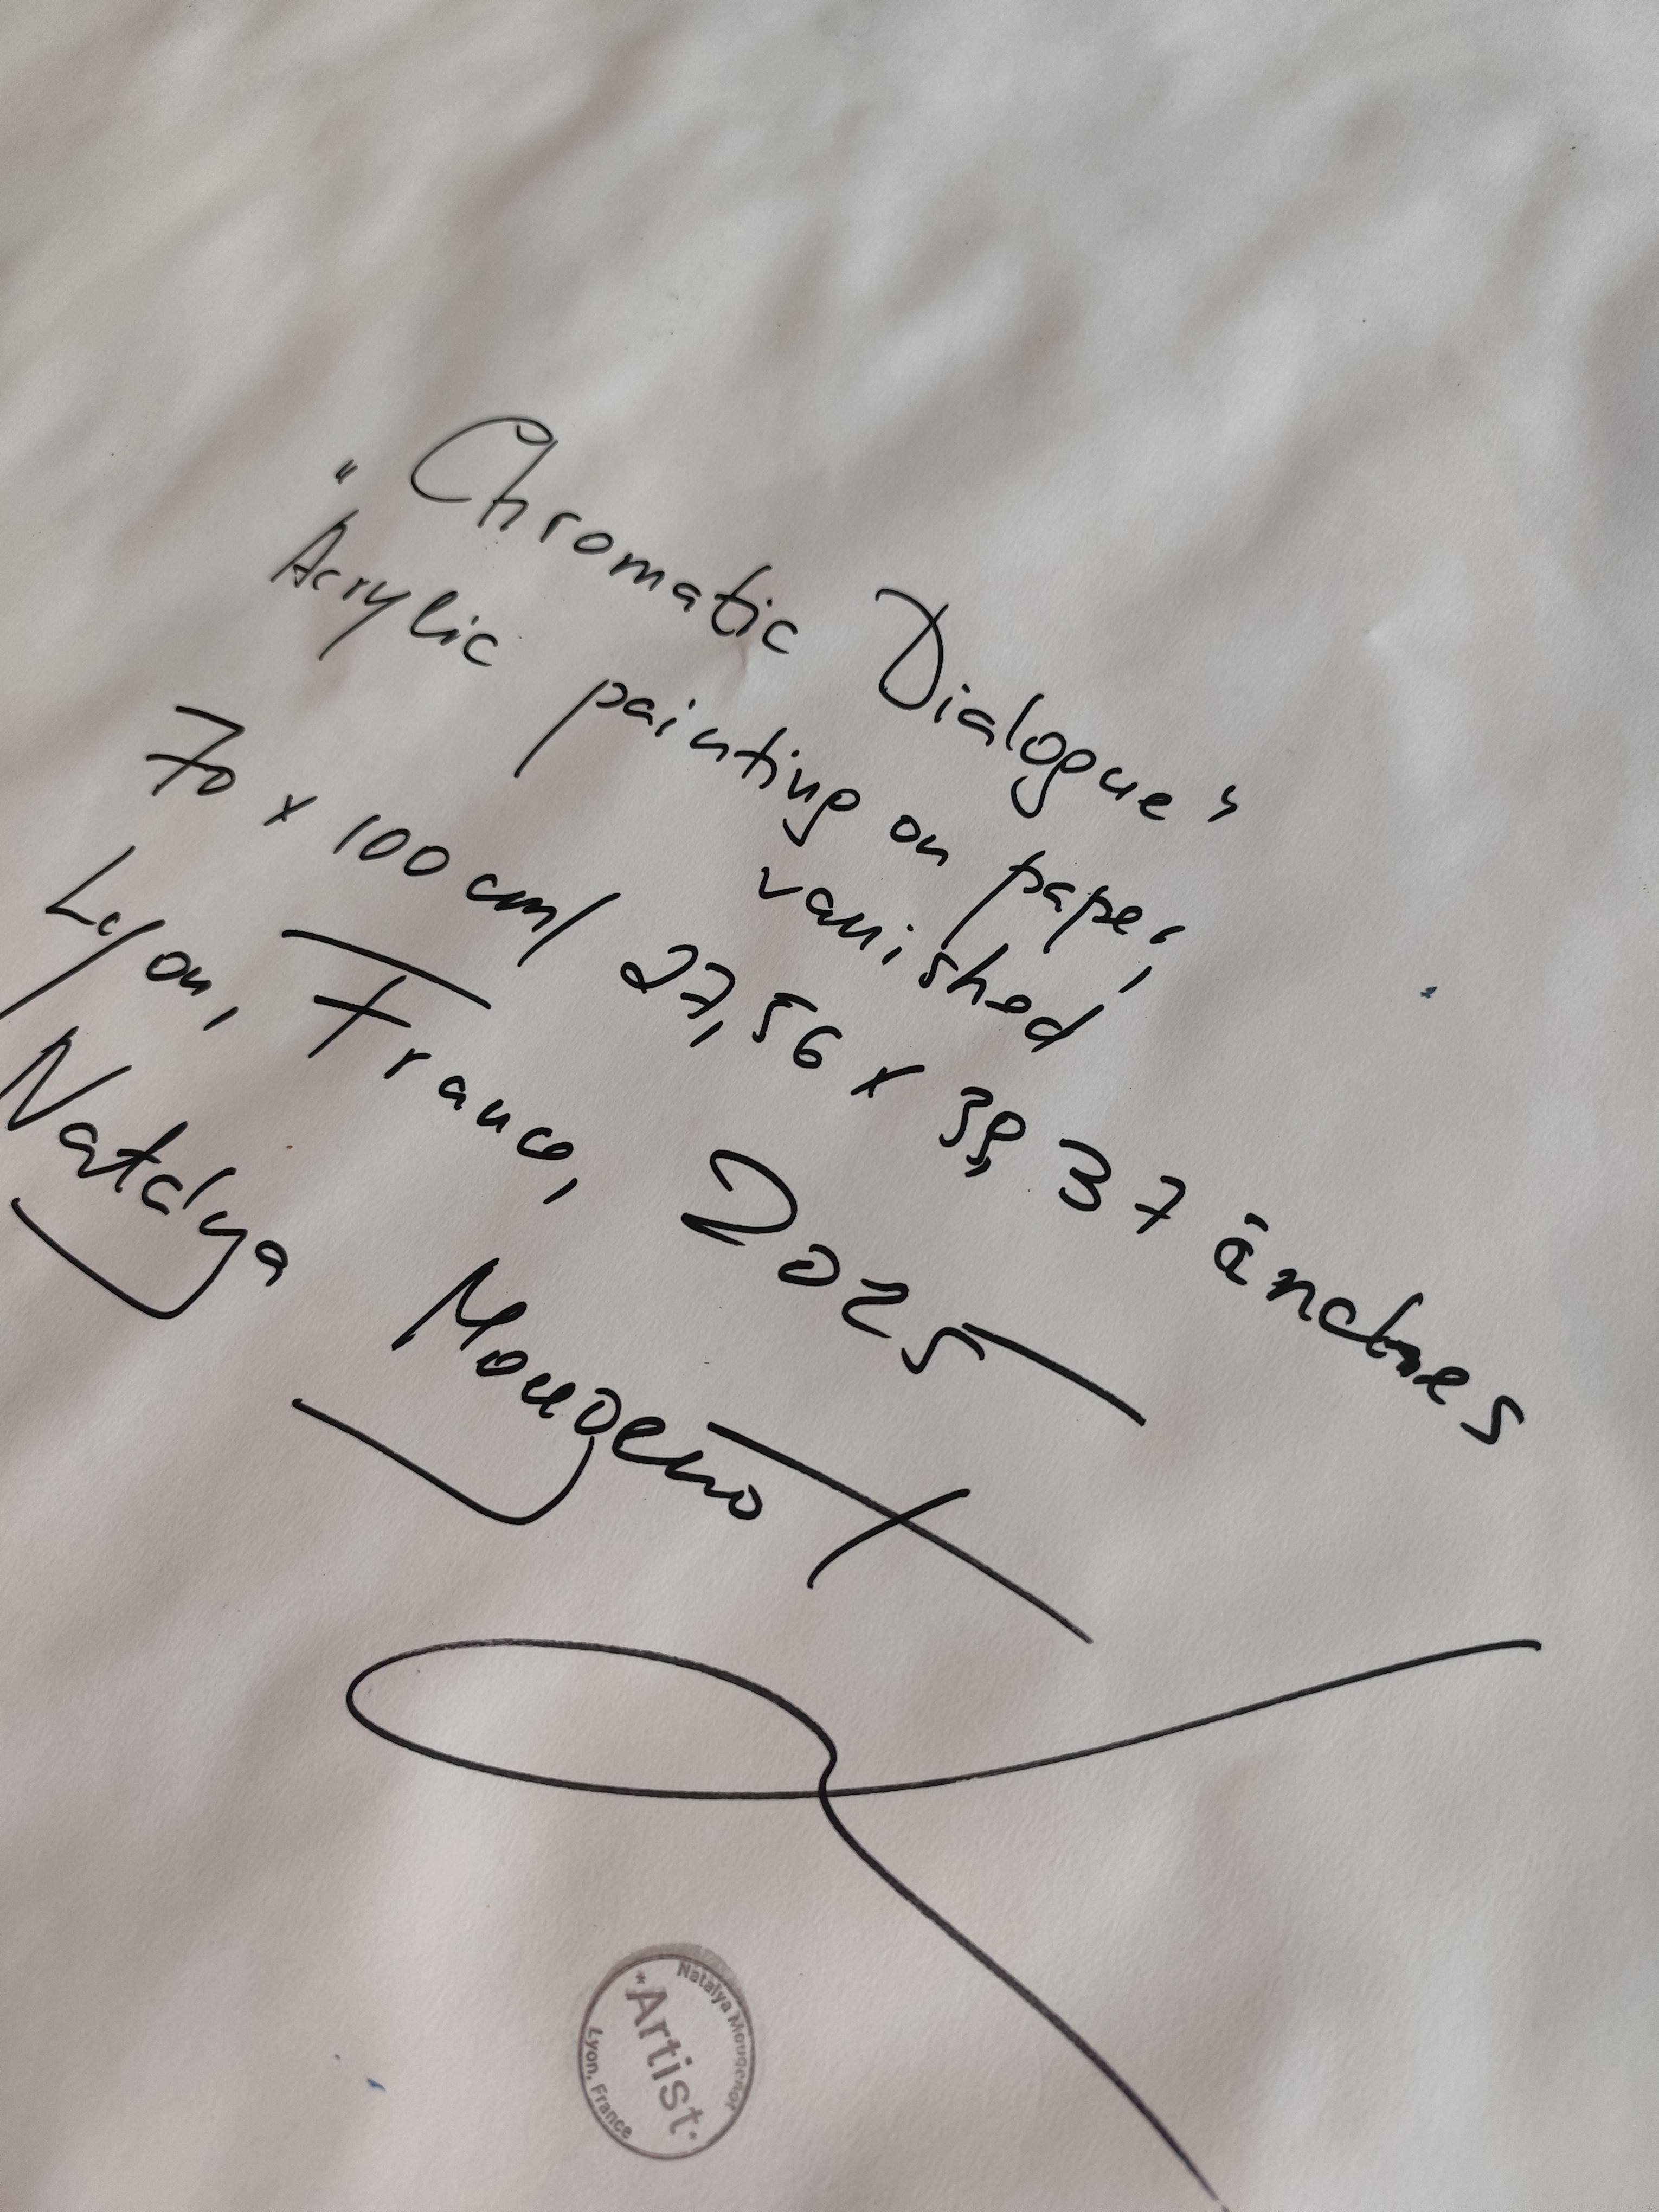 "Chromatic Dialogue"
Acrylic painting on paper,
vanished
70 x 100 cm/ 27,56 x 39,37 inches
Lyon, France, 2025
Natalya Mougenot
Natalya Mougenot
*Artist*
Lyon, France